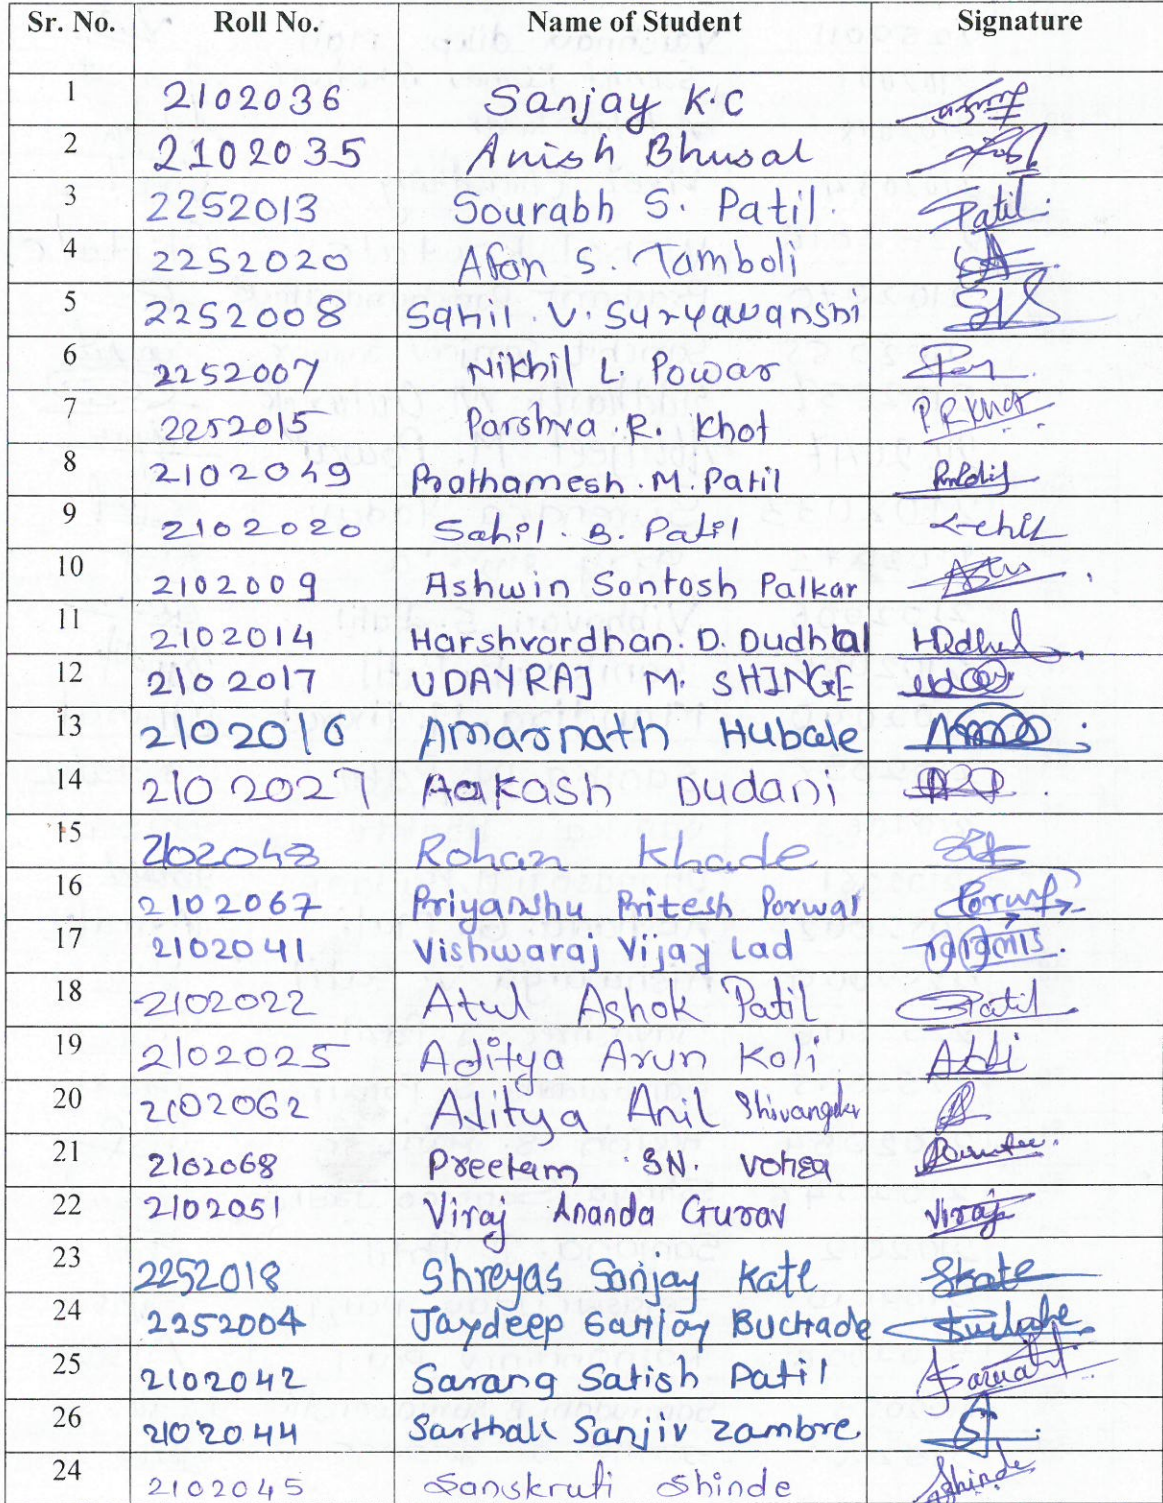 Sr. No. Roll No. Name of Student Signature
1 2102036 Sanjay K.C
2 2102035 Anish Bhusal
3 2252013 Sourabh S. Patil. Patil
4 2252020 Afan S. Tamboli
5 2252008 Sahil . V. Suryavanshi
6 2252007 Nikhil L. Powar
7 2252015 Parshva . R. Khot PRKhot
8 2102049 Prathamesh . M. Patil
9 2102020 Sahil . B. Patil
10 2102009 Ashwin Santosh Palkar
11 2102014 Harshvardhan. D. Dudhal
12 2102017 UDAYRAJ M. SHINGE
13 2102016 Amarnath Hubale
14 2102027 Aakash Dudani
15 2102048 Rohan Khade
16 2102067 Priyanshu Pritesh Porwal
17 2102041 Vishwaraj Vijay Lad
18 2102022 Atul Ashok Patil Patil
19 2102025 Aditya Arun Koli
20 2102062 Aditya Anil
21 2102068 Preetam SN. Vohra
22 2102051 Viraj Ananda Gurav Viraj
23 2252018 Shreyas Sanjay Kate Skate
24 2252004 Jaydeep Sanjay Buchade
25 2102042 Sarang Satish Patil
26 2102044 Sarthak Sanjiv Zambre
24 2102045 Sanskruti Shinde Shinde